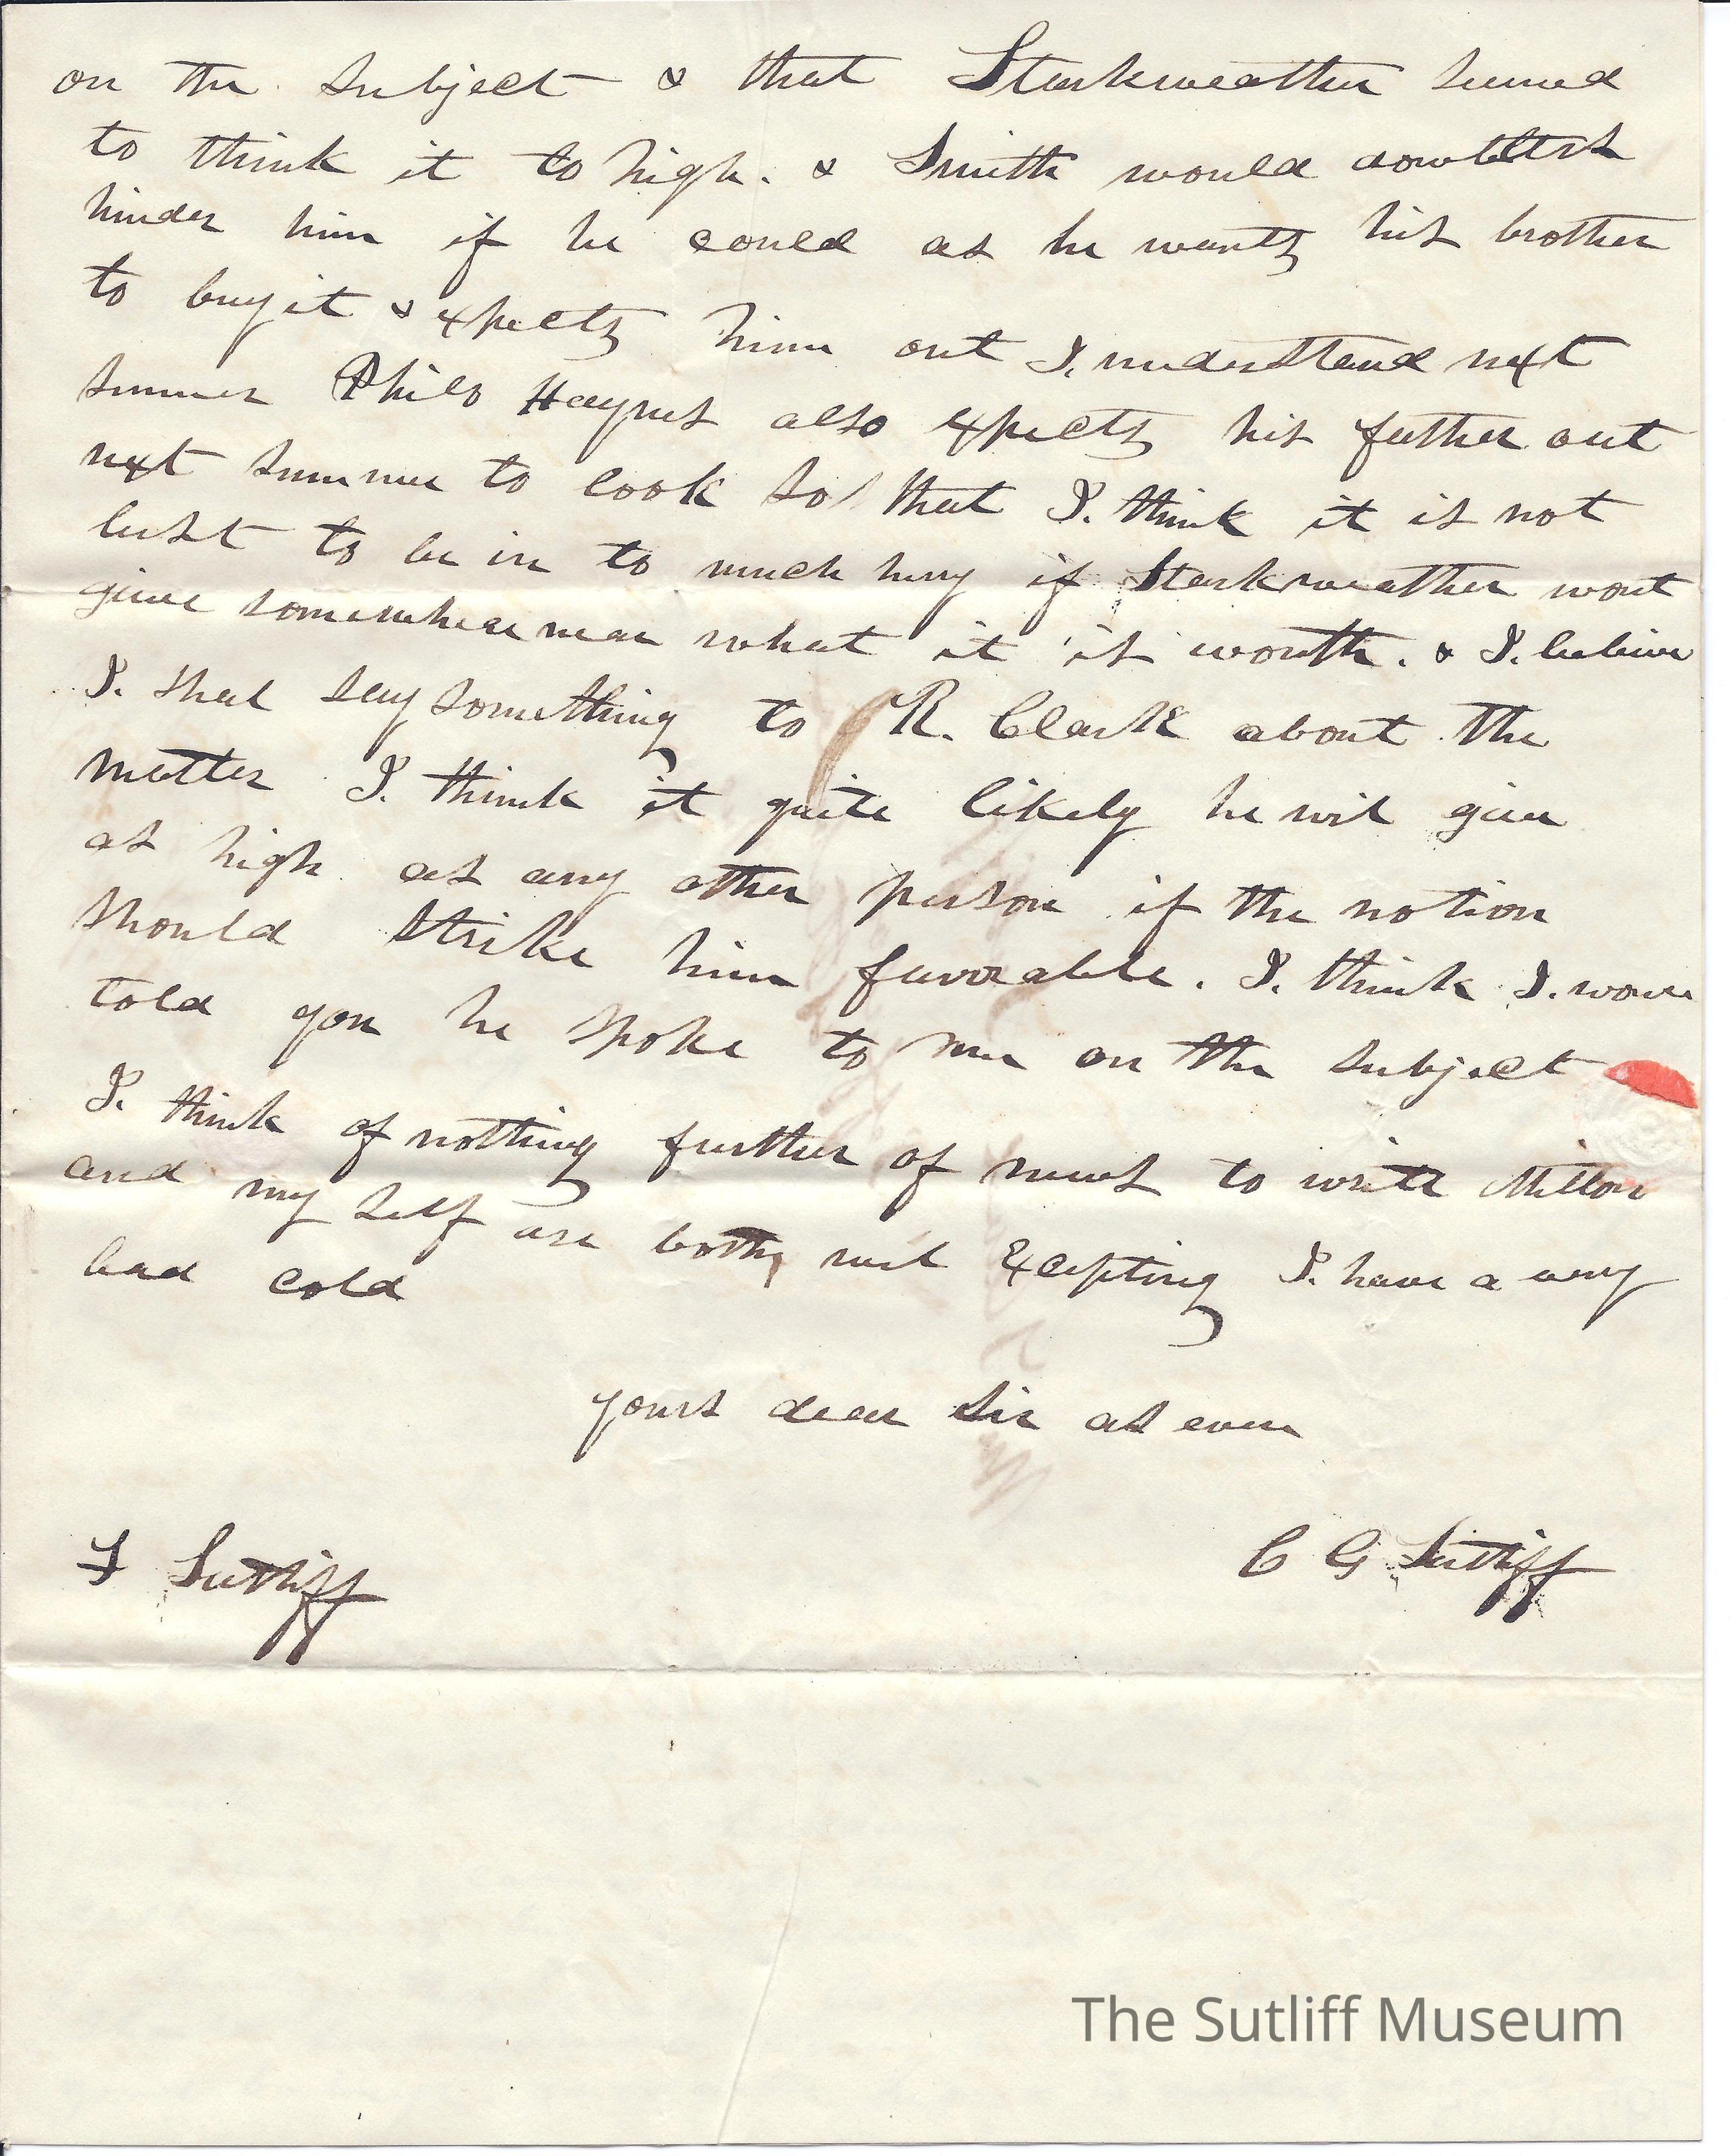 on the subject & that Starkweather seemed
to think it to high. & Smith would doubtless
hinder him if he could as he wants his brother
to buy it & expects him out I. understand next
summer Philo Haynes also expects his father out
next summer to look so that I. think it is not
best to be in to much hury if Starkweather wont
give somewhere near what it is worth. & I. beleive
I. shal say something to R. Clark about the
matter I. think it quite likely he wil give
as high as any other person if the notion
should strike him favorable. I. think I.
told you he spoke to me on the subject
I. think of nothing further of news to write Milton
and my self are both wel excepting I. have a very
bad cold
yours dear sir as ever
F Sutliff
C G Sutliff
The Sutliff Museum